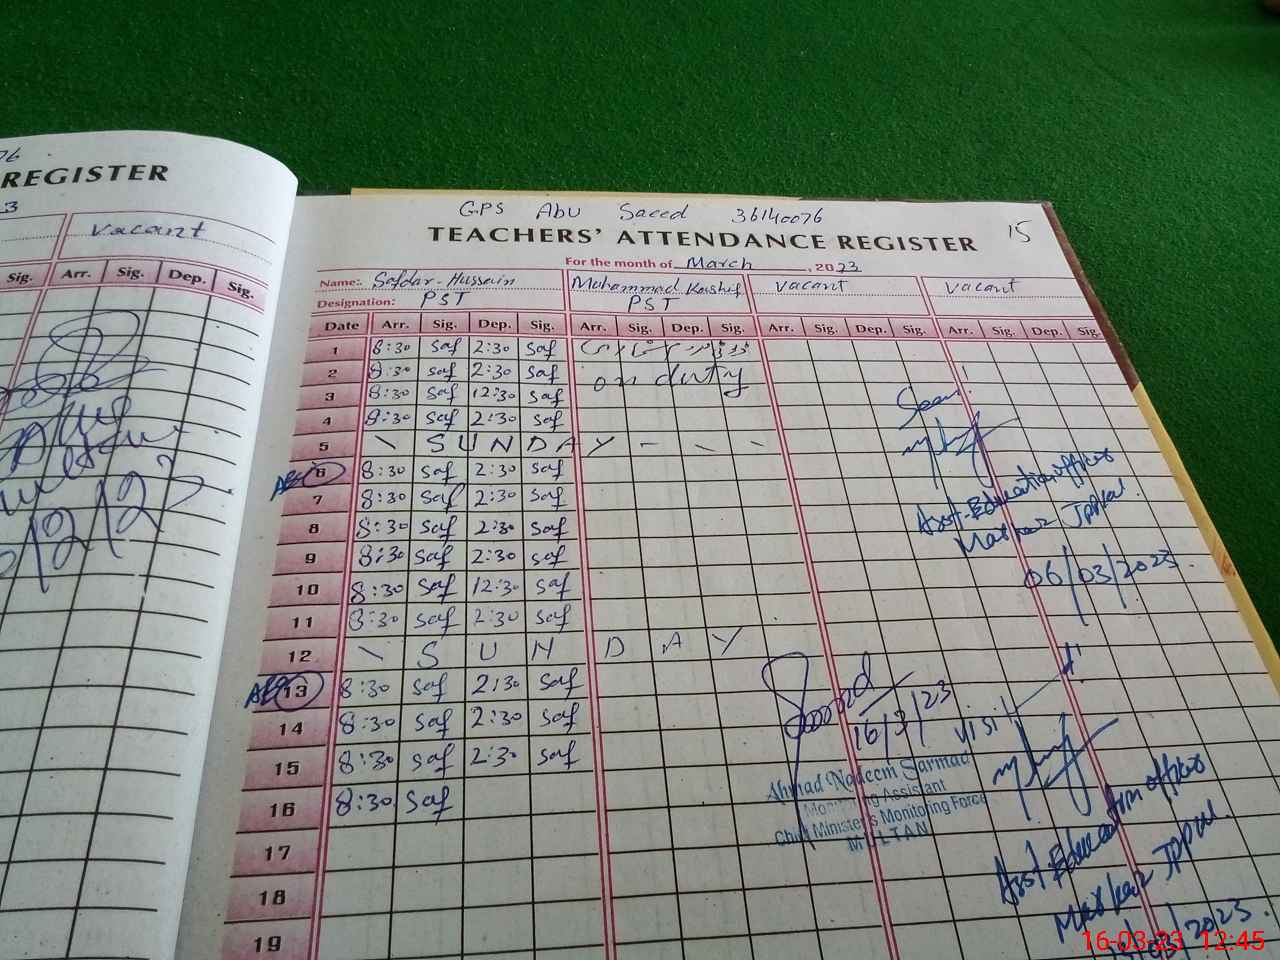 REGISTER
3
vacant
Sig. Arr. Sig. Dep. Sig.
GPS Abu Saeed 36140076
15
TEACHERS' ATTENDANCE REGISTER
For the month of March, 2023
Name: Safdar-Hussain Muhammad Kashif vacant vacant
Designation: PST PST
Date Arr. Sig. Dep. Sig. Arr. Sig. Dep. Sig. Arr. Sig. Dep. Sig. Arr. Sig. Dep. Sig.
1 8:30 saf 2:30 saf
2 8:30 saf 2:30 saf on duty
3 8:30 saf 12:30 saf
4 8:30 saf 2:30 saf
5 \ SUNDAY - - -
6 8:30 saf 2:30 saf
7 8:30 saf 2:30 saf
8 8:30 saf 2:30 saf
9 8:30 saf 2:30 saf
10 8:30 saf 12:30 saf
11 8:30 saf 2:30 saf
12 \ SUNDAY
13 8:30 saf 2:30 saf
14 8:30 saf 2:30 saf
15 8:30 saf 2:30 saf
16 8:30 saf
17
18
19
Seen!
Asst-Education officer
Markaz
06/03/2023.
16/3/23
Ahmad Nadeem Sarmad
Monitoring Assistant
Chief Minister's Monitoring Force
MULTAN
visit
Asst Education officer
Markaz
/2023.
16-03-23 12:45